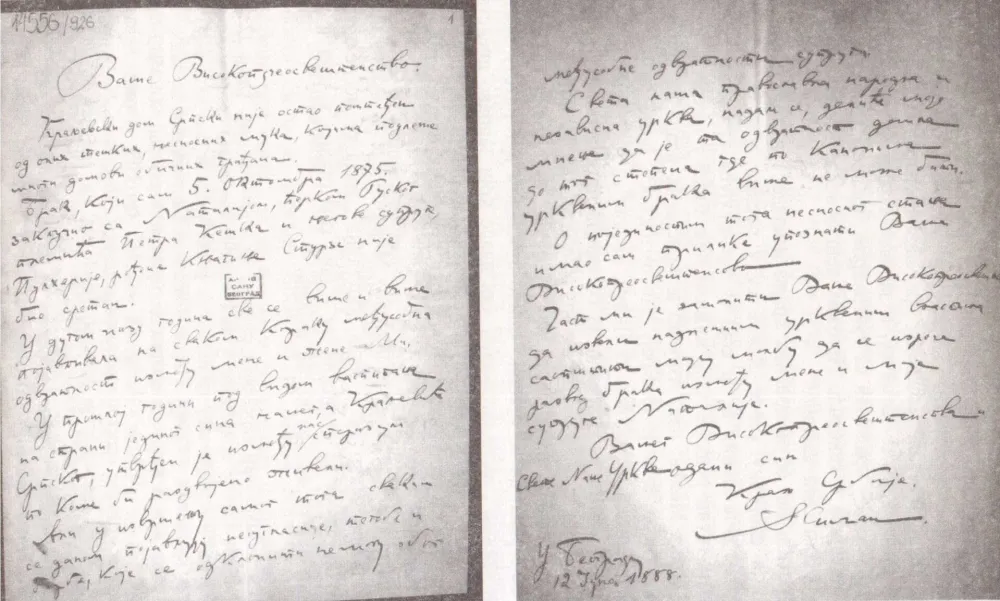 11556/926
1
Ваше Високопреосвештенство.
Краљевски дом Српски није остао поштеђен
од оних тешких, несносних мука, којима подлеже
многи домови обичних грађана.
Брак, који сам 5. Октомбра 1875.
закључио са Наталијом, ћерком Руског
племића Петра Кешка и његове супруге,
Пулхерије, рођене Књегиње Стурзе није
био сретан.
САНУ
БЕОГРАД
У дугом низу година све се више и више
појављивала на сваком кораку међусобна
одвратност између мене и жене Ми.
У прошлој години под видом васпитања
на страни јединог сина нашег, а Краљевића
Српског, утврђен је између нас
по коме би раздвојено живели.
Али у извршењу самог тога
се даном појављују несугласице, и
које се одклонити не могу због
међусобне одвратности супруга.
Света наша православна народна и
независна црква, надам се, делиће моје
мнење да је та одвратност дошла
до тог степена где по Канонима
црквеним брака више не може бити.
О појединостима тога несносног стања
имао сам прилике упознати Ваше
Високопреосвештенство.
Част ми је замолити Ваше Високопреосвештенство
да изволи надлежним црквеним властима
саопштити моју молбу да се изрече
развод брака између мене и моје
супруге Наталије.
Вашег Високопреосвештенства и
Свете Наше Цркве одани син
Краљ Србије.
Милан.
У Београду
12 Јуна 1888.